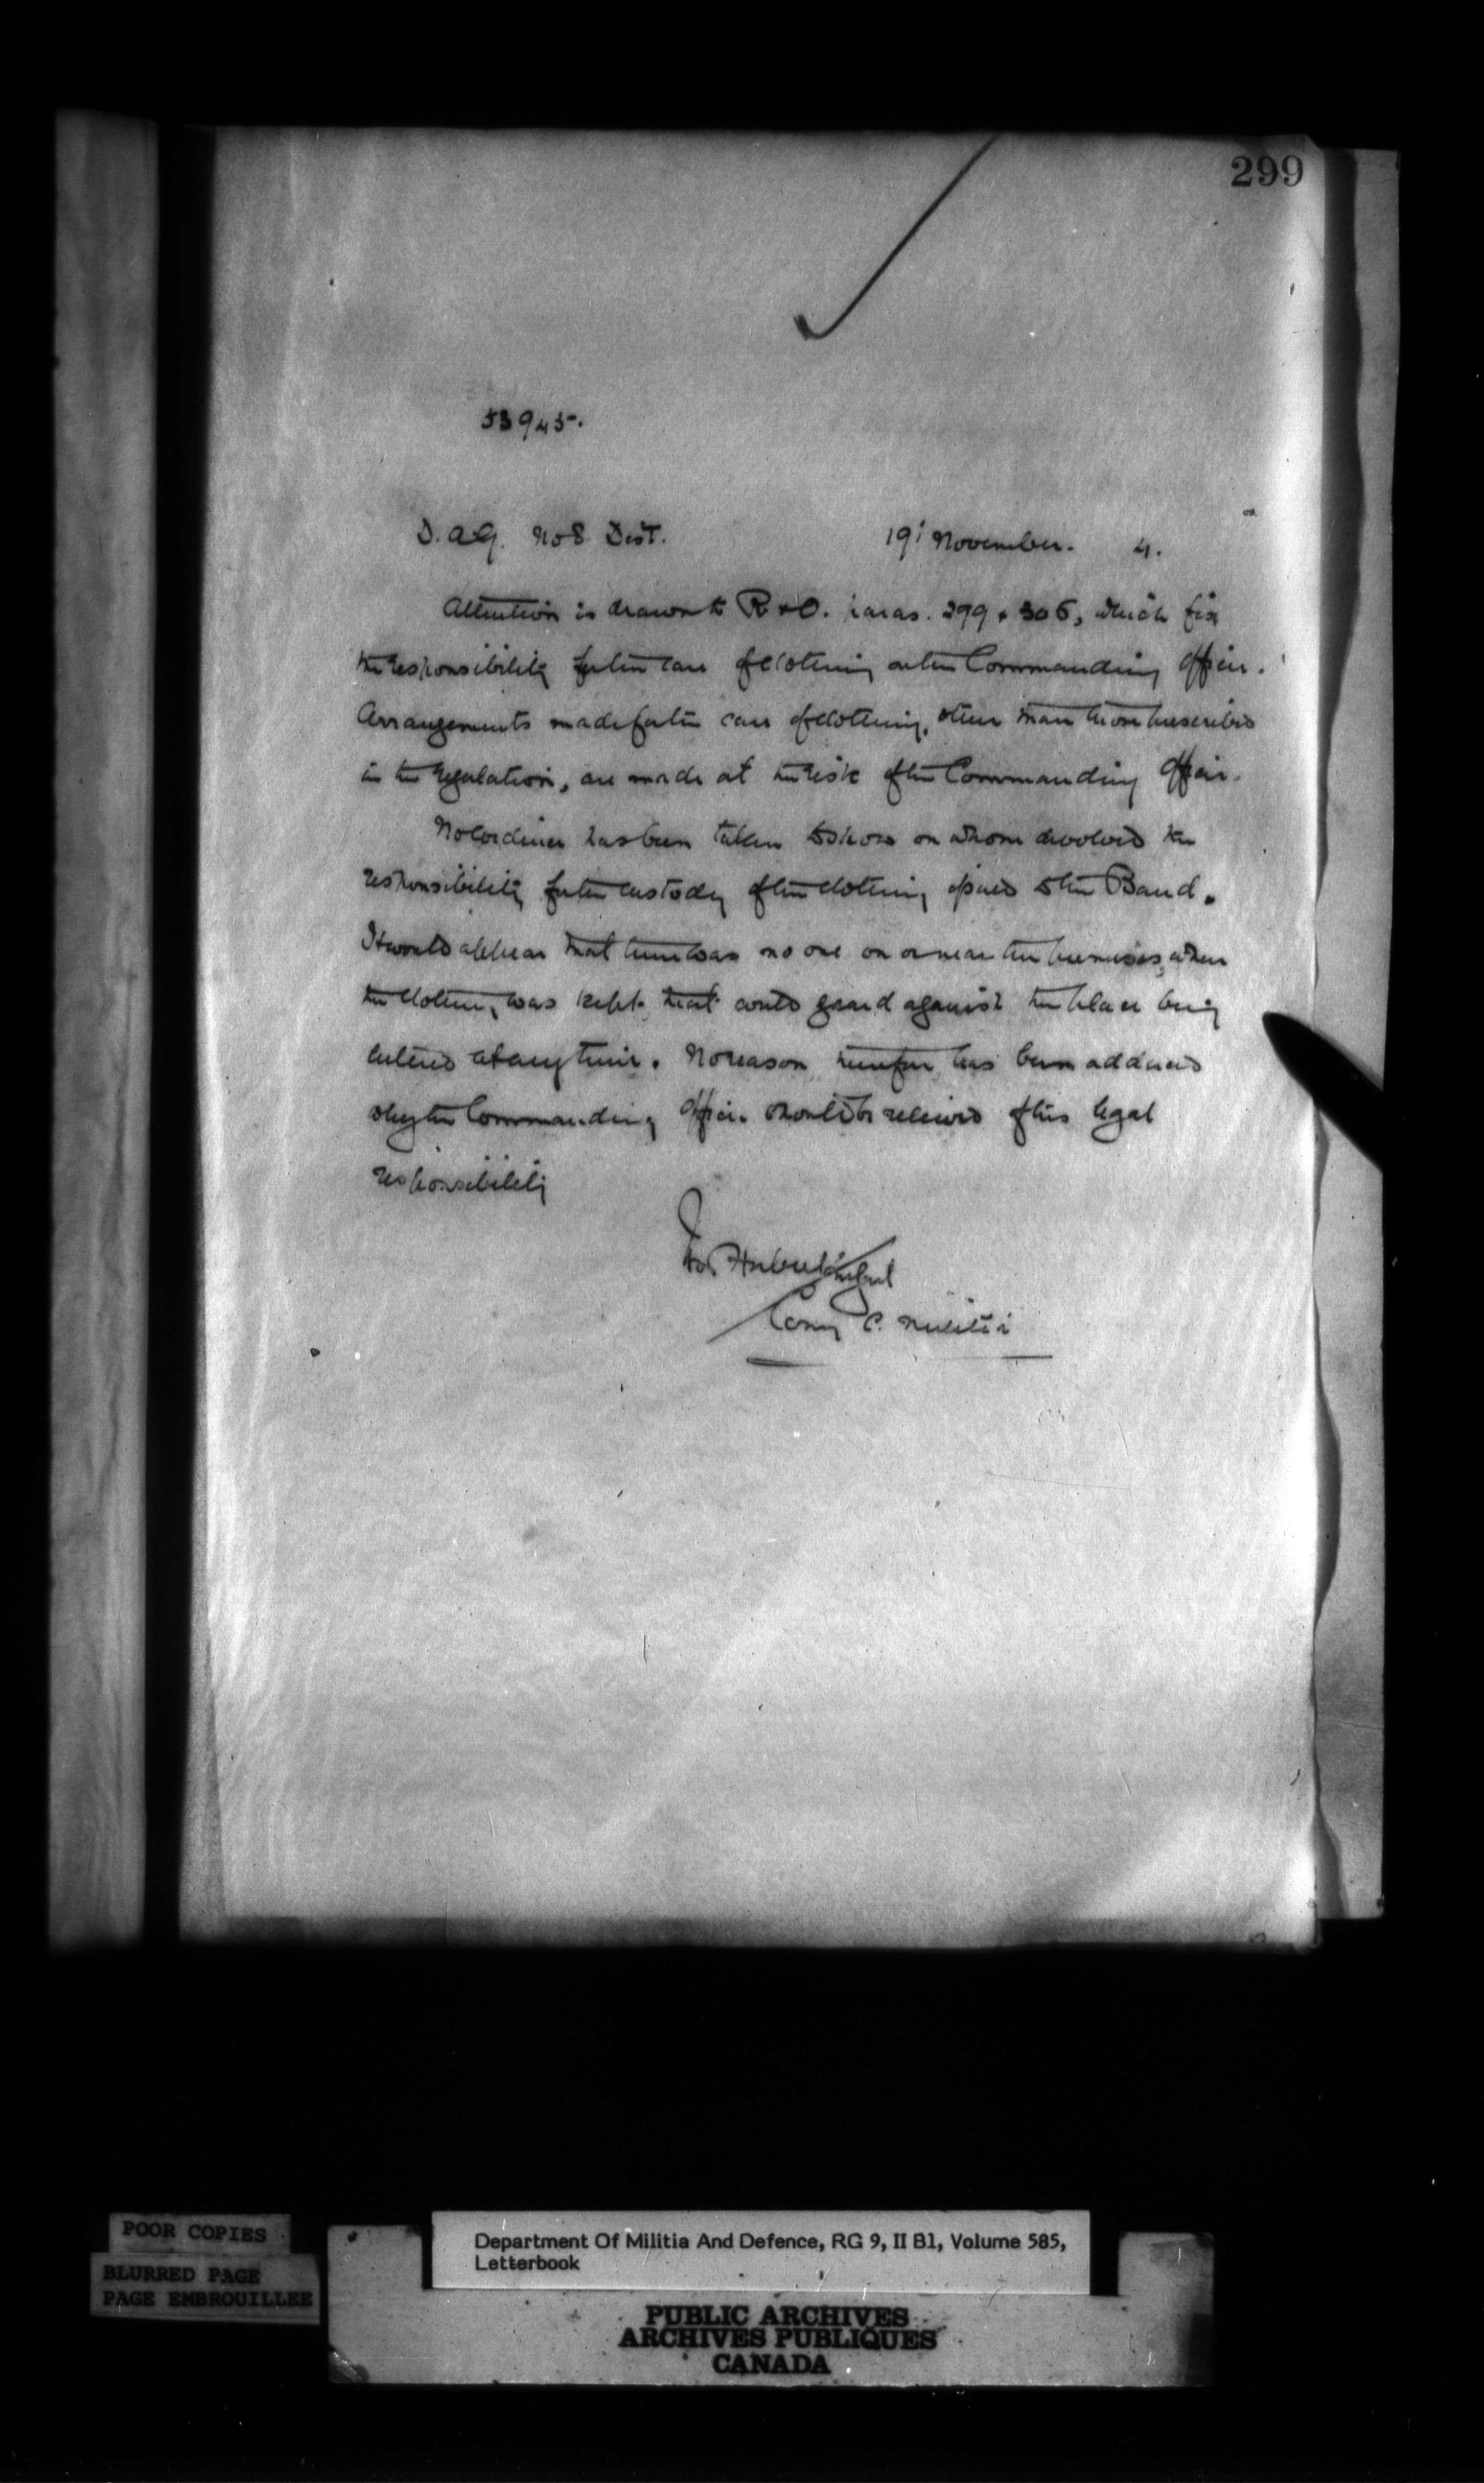 299
53945.
D.A.G. No 8. Dist. 19' November. 4.
Attention is drawn to R & O. paras. 299 & 306, which fix
the responsibility for the care of clothing on the Commanding Officer.
Arrangements made for the care of clothing, other than those prescribed
in the regulation, are made at the risk of the Commanding Officer.
No evidence has been taken to show on whom devolved the
responsibility for the custody of the clothing issued to the Band.
It would appear that there was no one on or near the premises, where
the clothing was kept that could guard against the place being
entered at any time. No reason therefor has been adduced
why the Commanding Officer should be relieved of his legal
responsibility
Comg C. Militia
POOR COPIES
BLURRED PAGE
PAGE EMBROUILLEE
Department Of Militia And Defence, RG 9, II B1, Volume 585,
Letterbook
PUBLIC ARCHIVES
ARCHIVES PUBLIQUES
CANADA